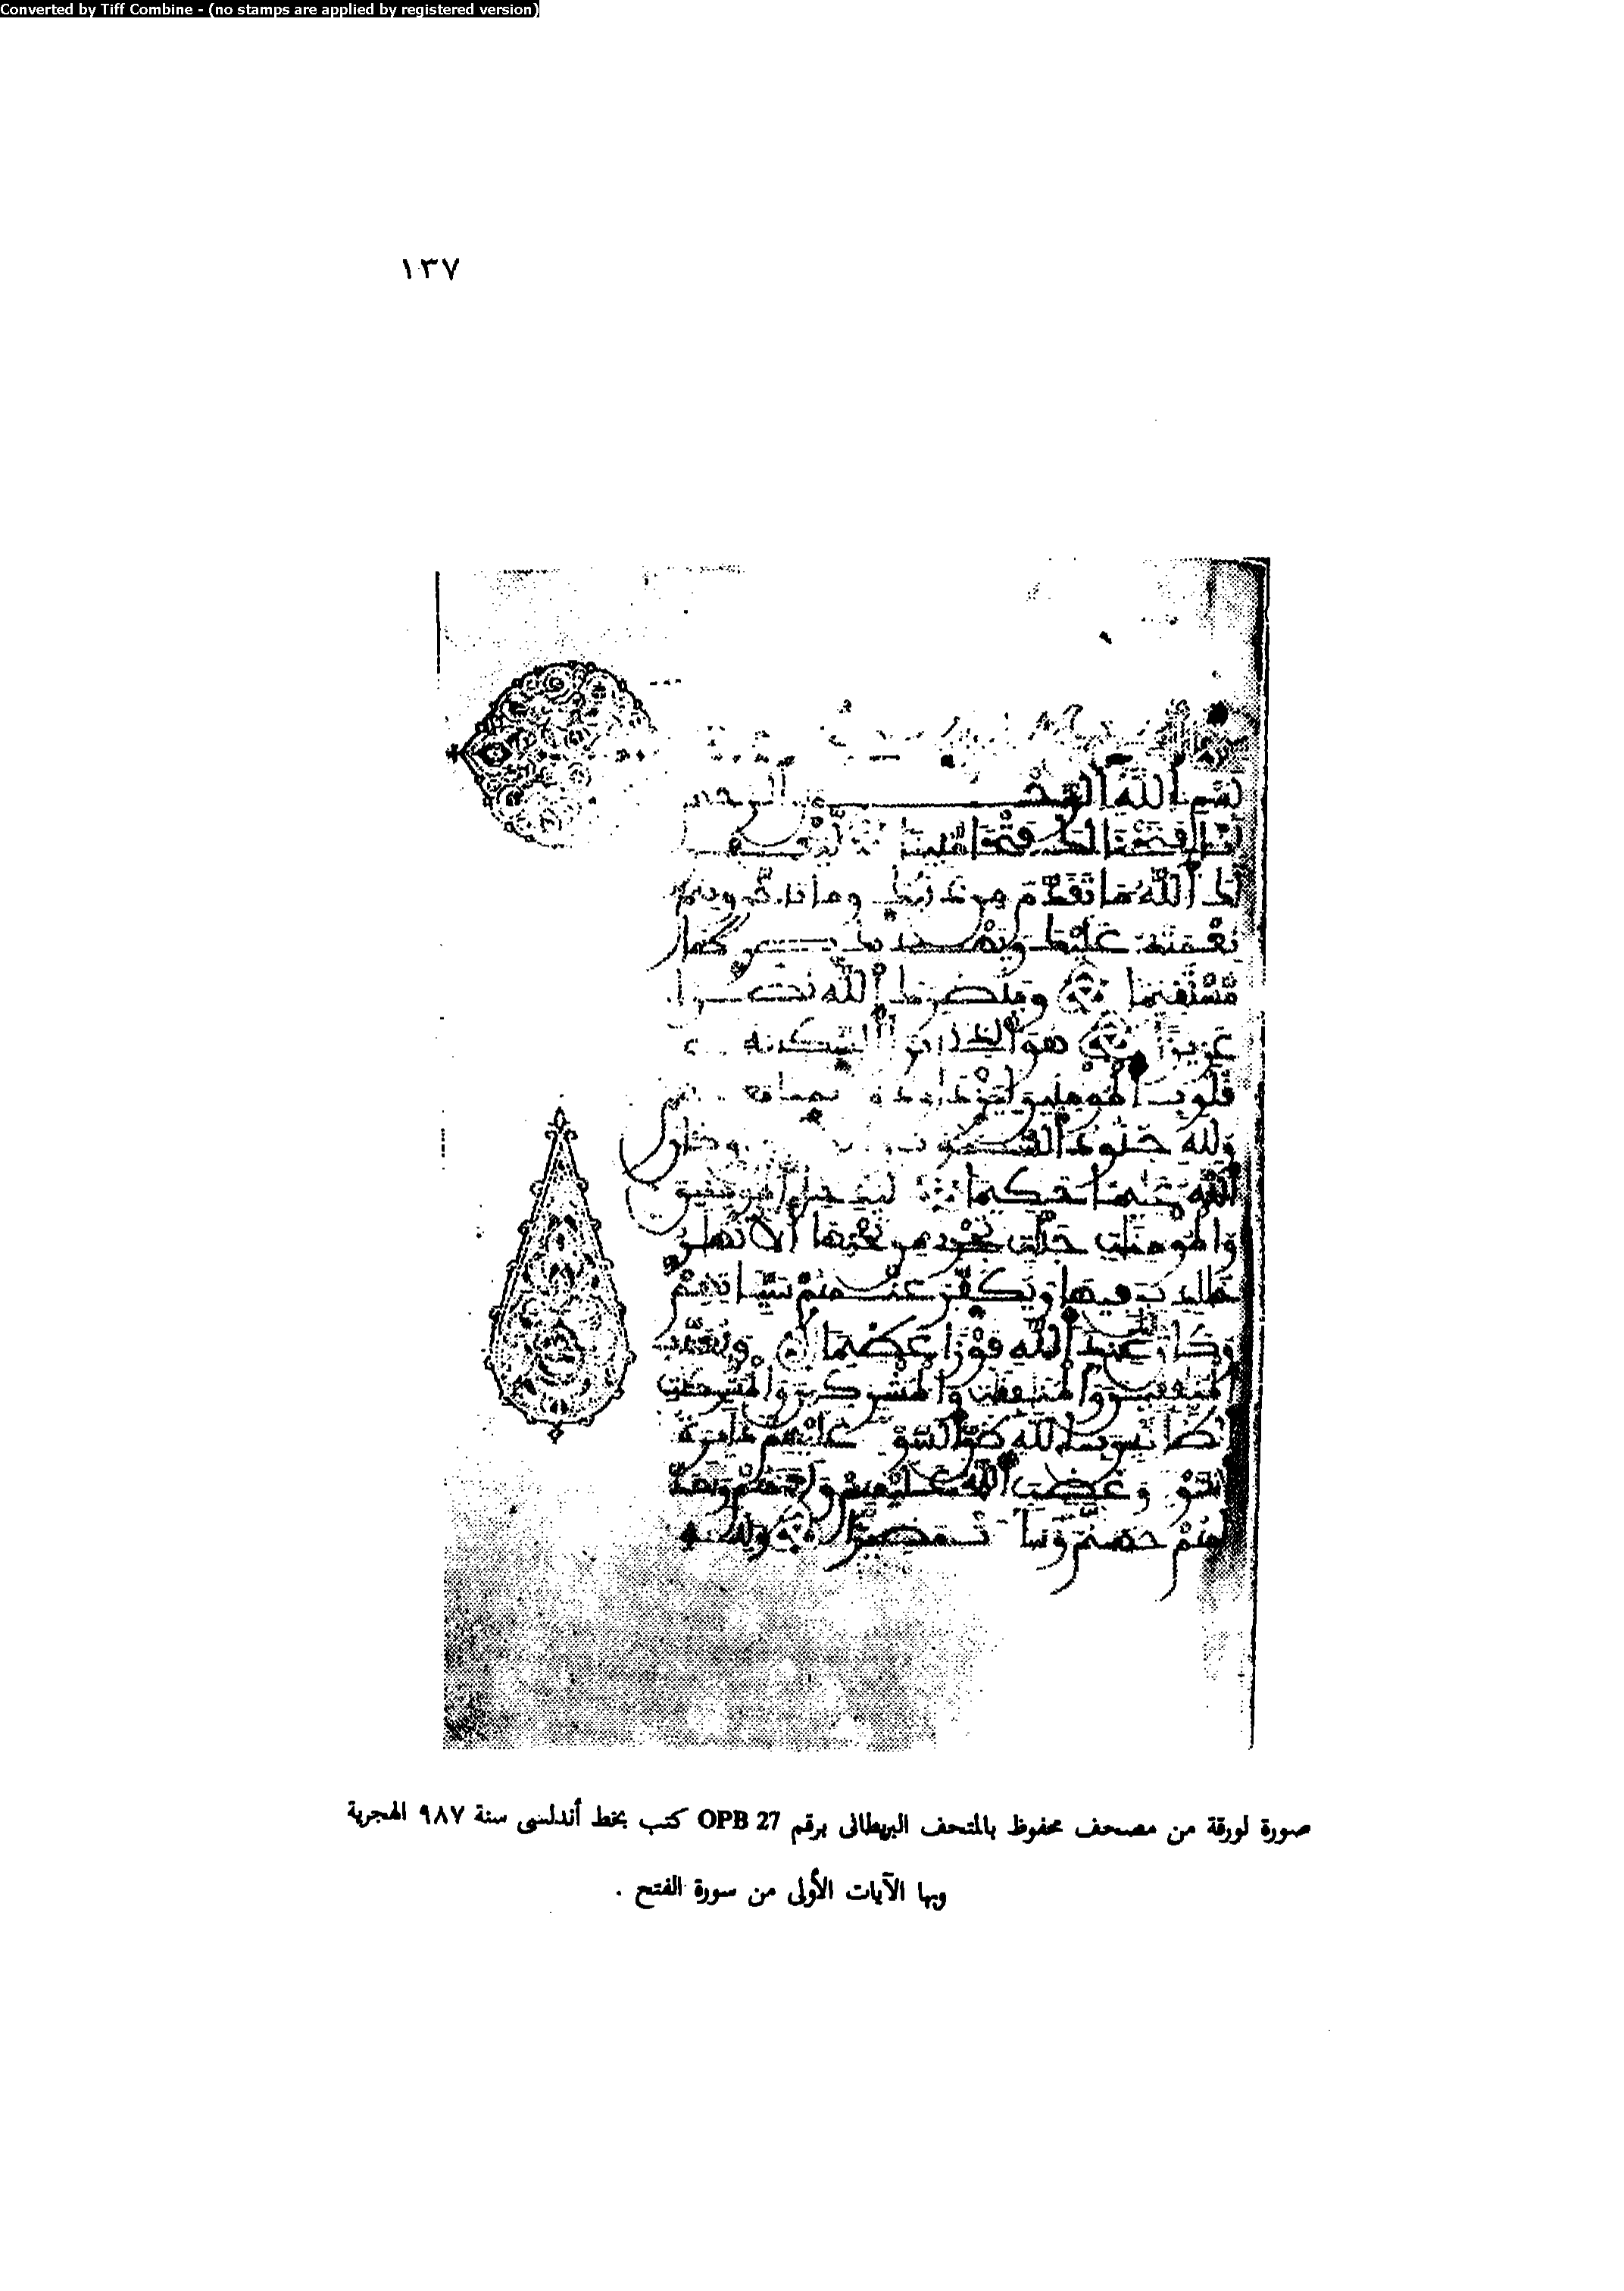 Converted by Tiff Combine - (no stamps are applied by registered version)
١٣٧
بسم الله الرحمن الرحيم
إنا فتحنا لك فتحا مبينا ليغفر
لك الله ما تقدم من ذنبك وما تأخر ويتم
نعمته عليك ويهديك
مستقيما وينصرك الله نصرا
عزيزا هو الذي أنزل السكينة
قلوب المؤمنين ليزدادوا
ولله جنود السموت وكان
الله عليما حكيما ليدخل المؤمنين
والمؤمنت جنت تجري من تحتها الانهر
خلدين فيها ويكفر عنهم سيئاتهم
وكان ذلك عند الله فوزا عظيما ويعذب
المنفقين والمنفقت والمشركين والمشركت
الظانين بالله ظن السوء عليهم دائرة
السوء وغضب الله عليهم ولعنهم وأعد
لهم جهنم وساءت مصيرا ولله
صورة لورقة من مصحف محفوظ بالمتحف البريطانى برقم OPB 27 كتب بخط أندلسى سنة ٩٨٧ الهجرية
وبها الآيات الأولى من سورة الفتح .